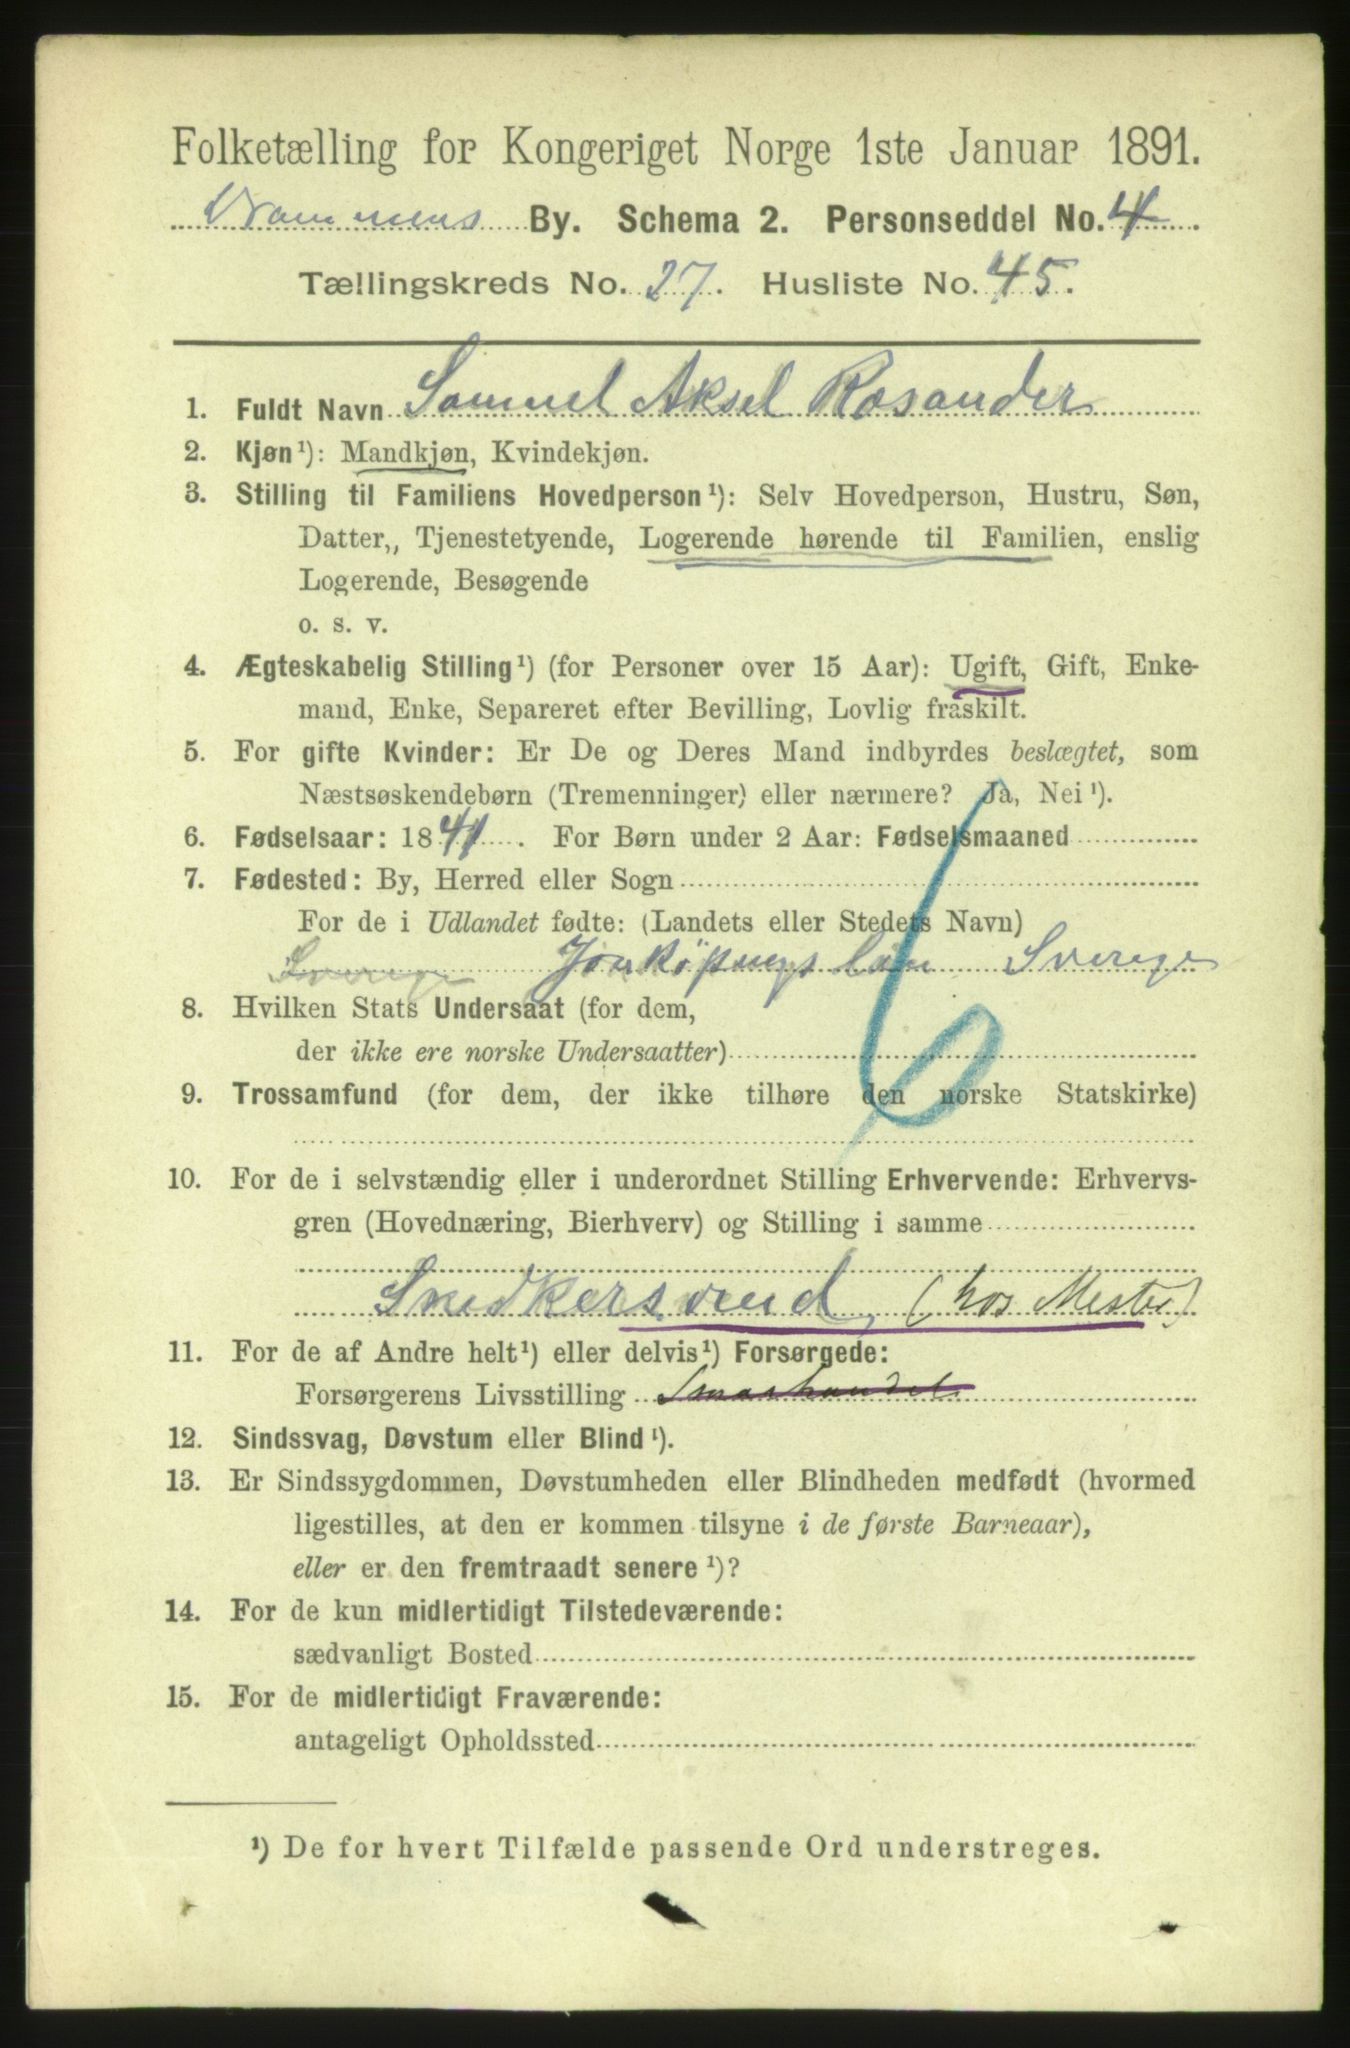 Folketælling for Kongeriget Norge 1ste Januar 1891.
Drammens By. Schema 2. Personseddel No. 4.
Tællingskreds No. 27. Husliste No. 45.
1. Fuldt Navn Samuel Aksel Rosander
2. Kjøn¹): Mandkjøn, Kvindekjøn.
3. Stilling til Familiens Hovedperson¹): Selv Hovedperson, Hustru, Søn,
Datter,, Tjenestetyende, Logerende hørende til Familien, enslig
Logerende, Besøgende
o. s. v.
4. Ægteskabelig Stilling¹) (for Personer over 15 Aar): Ugift, Gift, Enke-
mand, Enke, Separeret efter Bevilling, Lovlig fraskilt.
5. For gifte Kvinder: Er De og Deres Mand indbyrdes beslægtet, som
Næstsøskendebørn (Tremenninger) eller nærmere? Ja, Nei¹).
6. Fødselsaar: 1841. For Børn under 2 Aar: Fødselsmaaned
7. Fødested: By, Herred eller Sogn
For de i Udlandet fødte: (Landets eller Stedets Navn)
Sverige Jonköpings län Sverige
8. Hvilken Stats Undersaat (for dem,
der ikke ere norske Undersaatter)
6
9. Trossamfund (for dem, der ikke tilhøre den norske Statskirke)
10. For de i selvstændig eller i underordnet Stilling Erhvervende: Erhvervs-
gren (Hovednæring, Bierhverv) og Stilling i samme
Snedkersvend, (hos Mester)
11. For de af Andre helt¹) eller delvis¹) Forsørgede:
Forsørgerens Livsstilling Smaahandel
12. Sindssvag, Døvstum eller Blind¹).
13. Er Sindssygdommen, Døvstumheden eller Blindheden medfødt (hvormed
ligestilles, at den er kommen tilsyne i de første Barneaar),
eller er den fremtraadt senere¹)?
14. For de kun midlertidigt Tilstedeværende:
sædvanligt Bosted
15. For de midlertidigt Fraværende:
antageligt Opholdssted
¹) De for hvert Tilfælde passende Ord understreges.